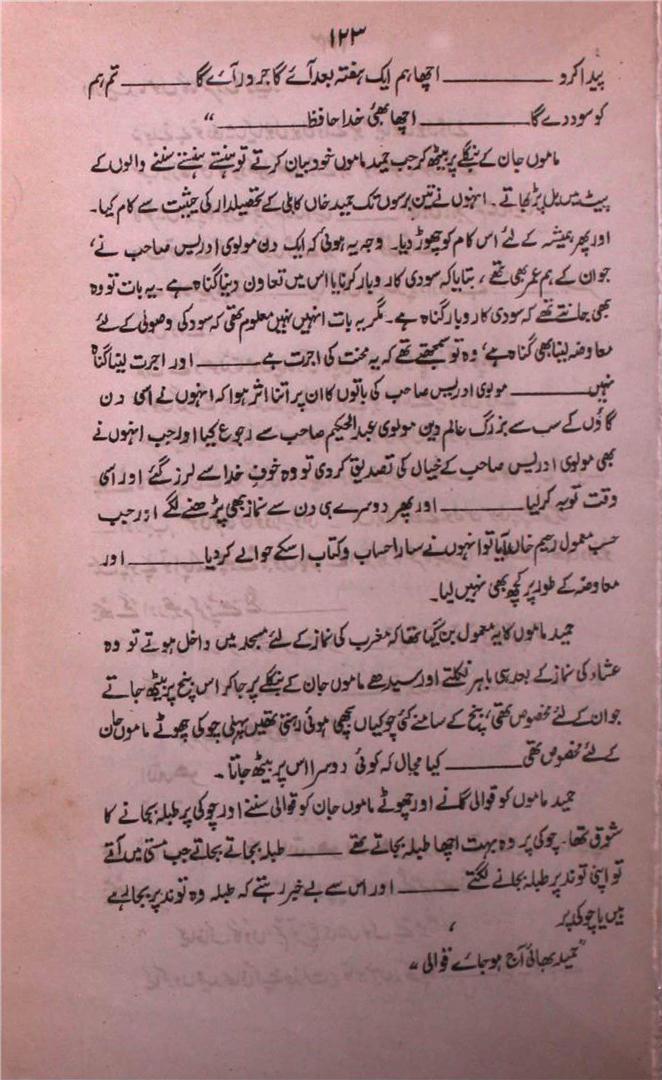 ۱۲۳
پیدا کرو ــــــــ اچھا ہم ایک ہفتہ بعد آئے گا جرور آئے گا ــــــــ تم ہم
کو سود دے گا ــــــــ اچھا بھئی خدا حافظ ــــــــ“
ماموں جان کے بنگلے پر بیٹھ کر جب حمید ماموں خود بیان کرتے تو ہنستے ہنستے سننے والوں کے
پیٹ میں بل پڑ جاتے ۔ انہوں نے تین برسوں تک حمید خاں کابلی کے تحصیلدار کی حیثیت سے کام کیا ۔
اور پھر ہمیشہ کے لئے اس کام کو چھوڑ دیا ۔ وجہ یہ ہوئی کہ ایک دن مولوی ادریس صاحب نے ،
جو ان کے ہم عمر بھی تھے ، بتایا کہ سودی کاروبار کرنا یا اس میں تعاون دینا گناہ ہے ۔ یہ بات تو وہ
بھی جانتے تھے کہ سودی کاروبار گناہ ہے ۔ مگر یہ بات انہیں نہیں معلوم تھی کہ سود کی وصولی کے لئے
معاوضہ لینا بھی گناہ ہے ، وہ تو سمجھتے تھے کہ یہ محنت کی اجرت ہے ــــــــ اور اجرت لینا گناہ
نہیں ــــــــ مولوی ادریس صاحب کی باتوں کا ان پر اتنا اثر ہوا کہ انہوں نے اسی دن
گاؤں کے سب سے بزرگ عالم دین مولوی عبدالحکیم صاحب سے رجوع کیا اور جب انہوں نے
بھی مولوی ادریس صاحب کے خیال کی تصدیق کر دی تو وہ خوفِ خدا سے لرز گئے اور اسی
وقت توبہ کر لیا ــــــــ اور پھر دوسرے ہی دن سے نماز بھی پڑھنے لگے اور جب
حسب معمول رحیم خاں آیا تو انہوں نے سارا حساب و کتاب اسکے حوالے کر دیا ــــــــ اور
معاوضہ کے طور پر کچھ بھی نہیں لیا ۔
حمید ماموں کا یہ معمول بن گیا تھا کہ مغرب کی نماز کے لئے مسجد میں داخل ہوتے تو وہ
عشاء کی نماز کے بعد ہی باہر نکلتے اور سیدھے ماموں جان کے بنگلے پر جا کر اس بنچ پر بیٹھ جاتے
جو ان کے لئے مخصوص تھی ، بنچ کے سامنے کئی چوکیاں بچھی ہوئی رہتی تھیں پہلی چوکی چھوٹے ماموں جان
کے لئے مخصوص تھی ــــــــ کیا مجال کہ کوئی دوسرا اس پر بیٹھ جاتا ۔
حمید ماموں کو قوالی گانے اور چھوٹے ماموں جان کو قوالی سننے اور چوکی پر طبلہ بجانے کا
شوق تھا ۔ چوکی پر وہ بہت اچھا طبلہ بجاتے تھے ــــــــ طبلہ بجاتے بجاتے جب مستی میں آتے
تو اپنی توند پر طبلہ بجانے لگتے ــــــــ اور اس سے بے خبر رہتے کہ طبلہ وہ توند پر بجا رہے
ہیں یا چوکی پر
”حمید بھائی آج ہو جائے قوالی “